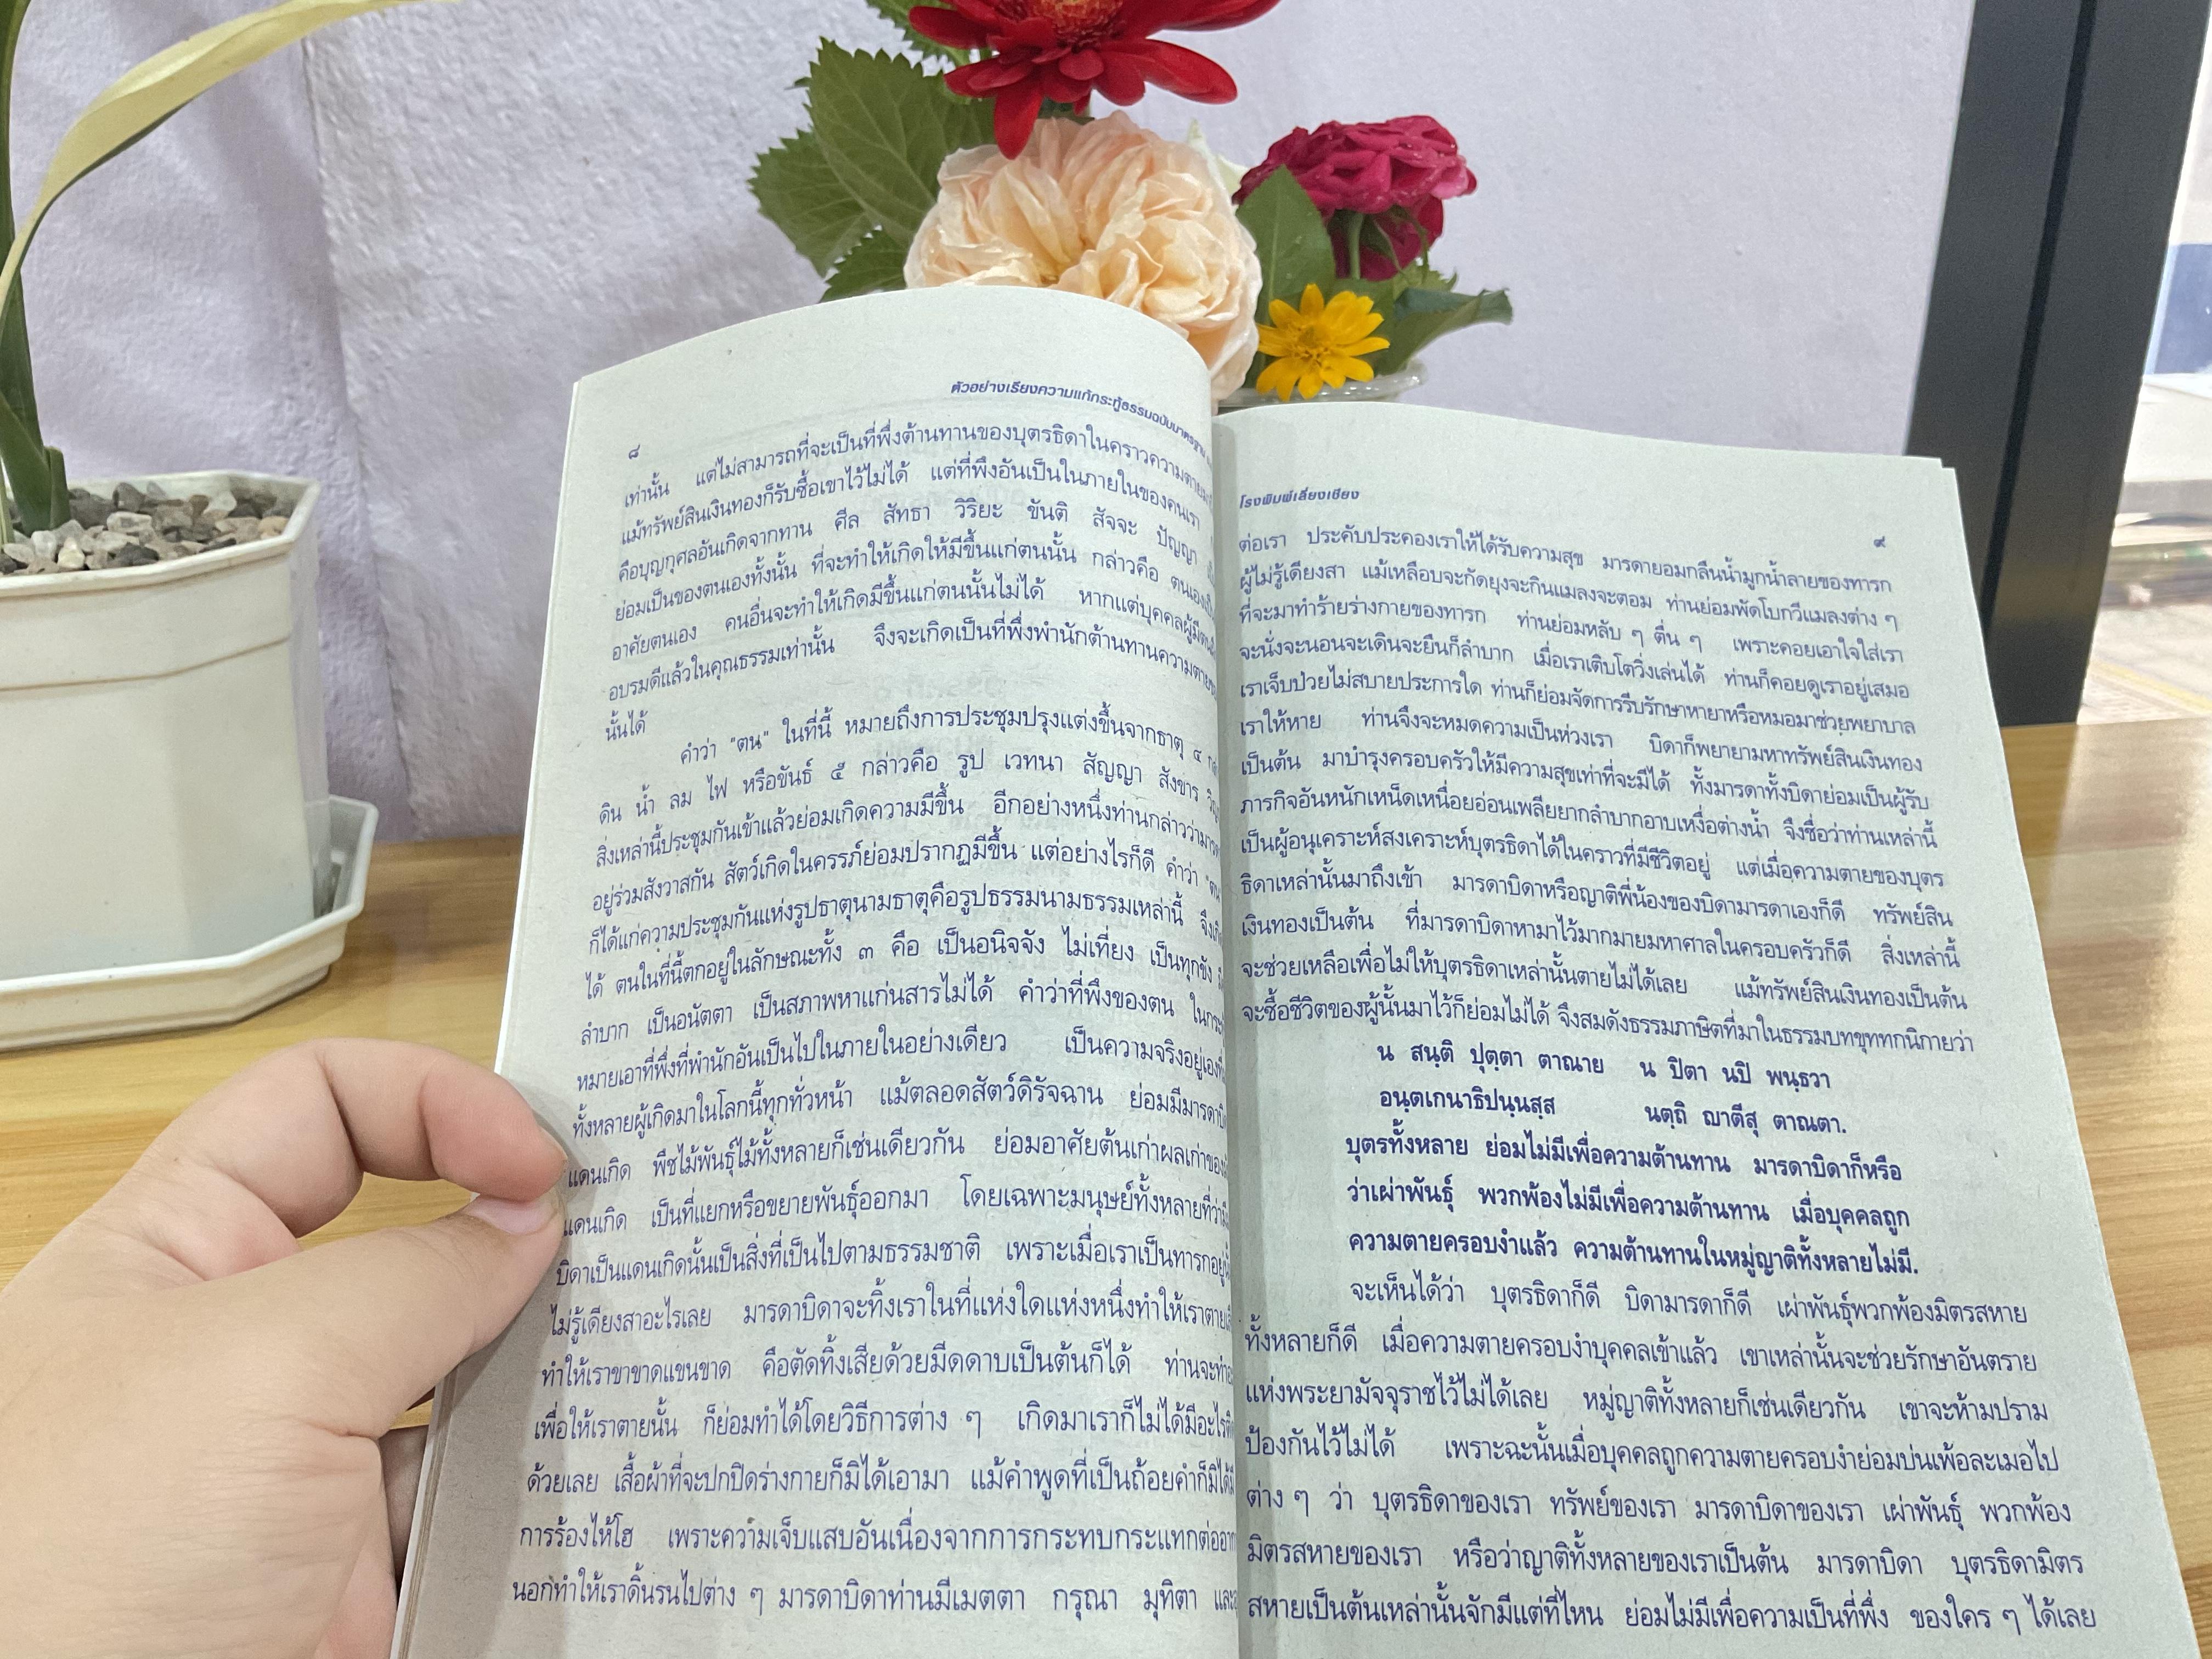 ตัวอย่างเรียงความแก้กระทู้ธรรมฉบับมาตรฐาน
๘
เท่านั้น แต่ไม่สามารถที่จะเป็นที่พึ่งต้านทานของบุตรธิดาในคราวความตาย
แม้ทรัพย์สินเงินทองก็รับซื้อเขาไว้ไม่ได้ แต่ที่พึงอันเป็นในภายในของคนเรา
คือบุญกุศลอันเกิดจากทาน ศีล สัทธา วิริยะ ขันติ สัจจะ ปัญญา
ย่อมเป็นของตนเองทั้งนั้น ที่จะทำให้เกิดให้มีขึ้นแก่ตนนั้น กล่าวคือ ตนเอง
อาศัยตนเอง คนอื่นจะทำให้เกิดมีขึ้นแก่ตนนั้นไม่ได้ หากแต่บุคคลผู้มี
อบรมดีแล้วในคุณธรรมเท่านั้น จึงจะเกิดเป็นที่พึ่งพำนักต้านทานความตาย
นั้นได้
คำว่า "ตน" ในที่นี้ หมายถึงการประชุมปรุงแต่งขึ้นจากธาตุ ๔
ดิน น้ำ ลม ไฟ หรือขันธ์ ๕ กล่าวคือ รูป เวทนา สัญญา สังขาร
สิ่งเหล่านี้ประชุมกันเข้าแล้วย่อมเกิดความมีขึ้น อีกอย่างหนึ่งท่านกล่าวว่า
อยู่ร่วมสังวาสกัน สัตว์เกิดในครรภ์ย่อมปรากฏมีขึ้น แต่อย่างไรก็ดี คำว่า "ตน
ก็ได้แก่ความประชุมกันแห่งรูปธาตุนามธาตุคือรูปธรรมนามธรรมเหล่านี้
ได้ ตนในที่นี้ตกอยู่ในลักษณะทั้ง ๓ คือ เป็นอนิจจัง ไม่เที่ยง เป็นทุกขัง
ลำบาก เป็นอนัตตา เป็นสภาพหาแก่นสารไม่ได้ คำว่าที่พึงของตน
หมายเอาที่พึ่งที่พำนักอันเป็นไปในภายในอย่างเดียว เป็นความจริงอยู่เอง
ทั้งหลายผู้เกิดมาในโลกนี้ทุกทั่วหน้า แม้ตลอดสัตว์ดิรัจฉาน ย่อมมีมารดา
แดนเกิด พืชไม้พันธุ์ไม้ทั้งหลายก็เช่นเดียวกัน ย่อมอาศัยต้นเก่าผลเก่าของ
แดนเกิด เป็นที่แยกหรือขยายพันธุ์ออกมา โดยเฉพาะมนุษย์ทั้งหลายที่ว่า
บิดาเป็นแดนเกิดนั้นเป็นสิ่งที่เป็นไปตามธรรมชาติ เพราะเมื่อเราเป็นทารกอยู่
ไม่รู้เดียงสาอะไรเลย มารดาบิดาจะทิ้งเราในที่แห่งใดแห่งหนึ่งทำให้เราตาย
ทำให้เราขาขาดแขนขาด คือตัดทิ้งเสียด้วยมีดดาบเป็นต้นก็ได้ ท่านจะ
เพื่อให้เราตายนั้น ก็ย่อมทำได้โดยวิธีการต่าง ๆ เกิดมาเราก็ไม่ได้มีอะไร
ด้วยเลย เสื้อผ้าที่จะปกปิดร่างกายก็มิได้เอามา แม้คำพูดที่เป็นถ้อยคำก็มิได้
การร้องไห้โฮ เพราะความเจ็บแสบอันเนื่องจากการกระทบกระแทกต่อ
นอกทำให้เราดิ้นรนไปต่าง ๆ มารดาบิดาท่านมีเมตตา กรุณา มุทิตา
โรงพิมพ์เลี่ยงเชียง
๙
ต่อเรา ประคับประคองเราให้ได้รับความสุข มารดายอมกลืนน้ำมูกน้ำลายของทารก
ผู้ไม่รู้เดียงสา แม้เหลือบจะกัดยุงจะกินแมลงจะตอม ท่านย่อมพัดโบกวีแมลงต่าง ๆ
ที่จะมาทำร้ายร่างกายของทารก ท่านย่อมหลับ ๆ ตื่น ๆ เพราะคอยเอาใจใส่เรา
จะนั่งจะนอนจะเดินจะยืนก็ลำบาก เมื่อเราเติบโตวิ่งเล่นได้ ท่านก็คอยดูเราอยู่เสมอ
เราเจ็บป่วยไม่สบายประการใด ท่านก็ย่อมจัดการรีบรักษาหายาหรือหมอมาช่วยพยาบาล
เราให้หาย ท่านจึงจะหมดความเป็นห่วงเรา บิดาก็พยายามหาทรัพย์สินเงินทอง
เป็นต้น มาบำรุงครอบครัวให้มีความสุขเท่าที่จะมีได้ ทั้งมารดาทั้งบิดาย่อมเป็นผู้รับ
ภารกิจอันหนักเหน็ดเหนื่อยอ่อนเพลียยากลำบากอาบเหงื่อต่างน้ำ จึงชื่อว่าท่านเหล่านี้
เป็นผู้อนุเคราะห์สงเคราะห์บุตรธิดาได้ในคราวที่มีชีวิตอยู่ แต่เมื่อความตายของบุตร
ธิดาเหล่านั้นมาถึงเข้า มารดาบิดาหรือญาติพี่น้องของบิดามารดาเองก็ดี ทรัพย์สิน
เงินทองเป็นต้น ที่มารดาบิดาหามาไว้มากมายมหาศาลในครอบครัวก็ดี สิ่งเหล่านี้
จะช่วยเหลือเพื่อไม่ให้บุตรธิดาเหล่านั้นตายไม่ได้เลย แม้ทรัพย์สินเงินทองเป็นต้น
จะซื้อชีวิตของผู้นั้นมาไว้ก็ย่อมไม่ได้ จึงสมดังธรรมภาษิตที่มาในธรรมบทขุททกนิกายว่า
น สนฺติ ปุตฺตา ตาณาย น ปิตา นปิ พนฺธวา
อนฺตเกนาธิปนฺนสฺส นตฺถิ ญาตีสุ ตาณตา.
บุตรทั้งหลาย ย่อมไม่มีเพื่อความต้านทาน มารดาบิดาก็หรือ
ว่าเผ่าพันธุ์ พวกพ้องไม่มีเพื่อความต้านทาน เมื่อบุคคลถูก
ความตายครอบงำแล้ว ความต้านทานในหมู่ญาติทั้งหลายไม่มี.
จะเห็นได้ว่า บุตรธิดาก็ดี บิดามารดาก็ดี เผ่าพันธุ์พวกพ้องมิตรสหาย
ทั้งหลายก็ดี เมื่อความตายครอบงำบุคคลเข้าแล้ว เขาเหล่านั้นจะช่วยรักษาอันตราย
แห่งพระยามัจจุราชไว้ไม่ได้เลย หมู่ญาติทั้งหลายก็เช่นเดียวกัน เขาจะห้ามปราม
ป้องกันไว้ไม่ได้ เพราะฉะนั้นเมื่อบุคคลถูกความตายครอบงำย่อมบ่นเพ้อละเมอไป
ต่าง ๆ ว่า บุตรธิดาของเรา ทรัพย์ของเรา มารดาบิดาของเรา เผ่าพันธุ์ พวกพ้อง
มิตรสหายของเรา หรือว่าญาติทั้งหลายของเราเป็นต้น มารดาบิดา บุตรธิดามิตร
สหายเป็นต้นเหล่านั้นจักมีแต่ที่ไหน ย่อมไม่มีเพื่อความเป็นที่พึ่ง ของใคร ๆ ได้เลย